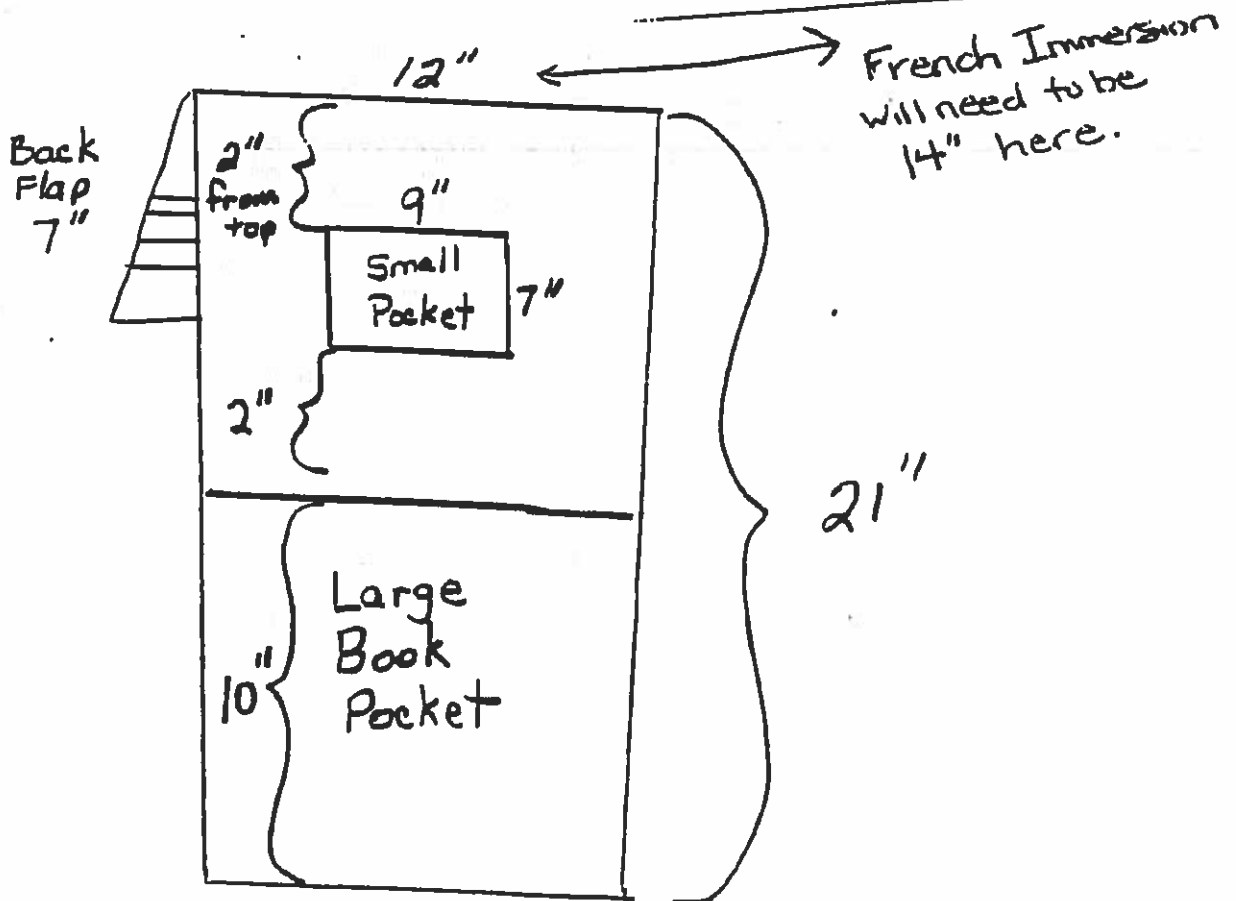 12"
French Immersion
will need to be
14" here.
Back
Flap
7"
2"
from
top
9"
Small
Pocket
7"
2"
21"
10"
Large
Book
Pocket